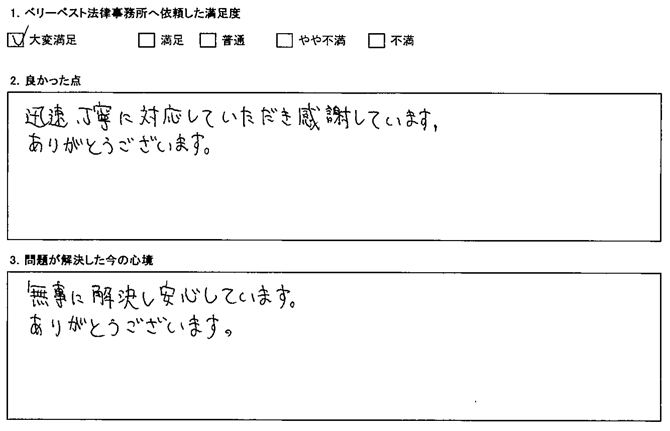 1. ベリーベスト法律事務所へ依頼した満足度
☑ 大変満足 □ 満足 □ 普通 □ やや不満 □ 不満
2. 良かった点
迅速丁寧に対応していただき感謝しています。
ありがとうございます。
3. 問題が解決した今の心境
無事に解決し安心しています。
ありがとうございます。